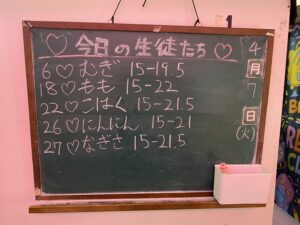 ♡ 今日の生徒たち ♡
6♡むぎ 15-19.5
18♡もも 15-22
22♡こはく 15-21.5
26♡にんにん 15-21
27♡なぎさ 15-21.5
4
月
7
日
(火)